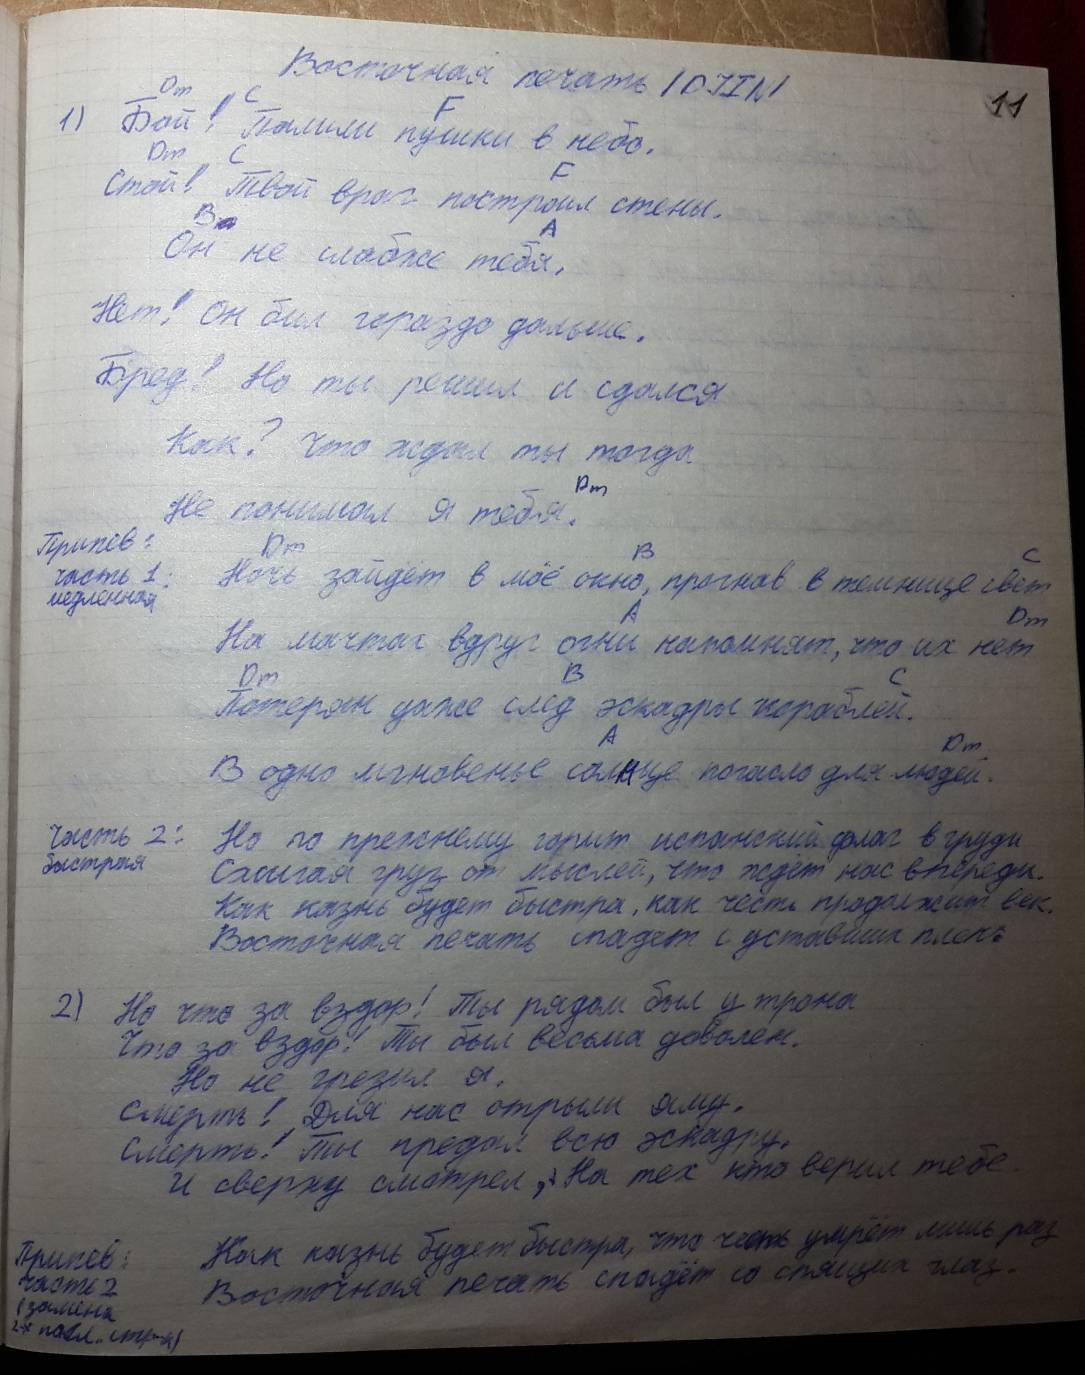 Восточная печать /OJIN/
11
Dm C F
1) Бой! Палили пушки в небо.
Dm C F
Стой! Твой враг построил стены.
B A
Он не слабже тебя.
Нет! Он был гораздо дальше.
Бред! Но ты решил и сдался
Как? Что ждал ты тогда
Dm
Не понимал я тебя.
Припев:
Dm B C
часть 1: Ночь зайдёт в моё окно, прогнав в темнице свет
медленная
A Dm
На мачтах вдруг огни напомнят, что их нет
Dm B C
Потерян уже след эскадры кораблей.
A Dm
В одно мгновенье солнце погасло для людей.
Часть 2: Но по прежнему горит испанский флаг в груди
быстрая Сжигая груз от мыслей, что ждёт нас впереди.
Как казнь будет быстра, как честь продолжит век.
Восточная печать спадёт с уставших плечь
2) Но что за вздор! Ты рядом был у трона
Что за вздор! Ты был весьма доволен.
Но не грезил я.
Смерть! Для нас открыли яму.
Смерть! Ты предал всю эскадру.
И сверху смотрел, На тех кто верил тебе.
Припев: Как казнь будет быстра, что честь умрёт лишь раз
часть 2 Восточная печать спадёт со спящих глаз.
(замена
2-х посл. стр-к)